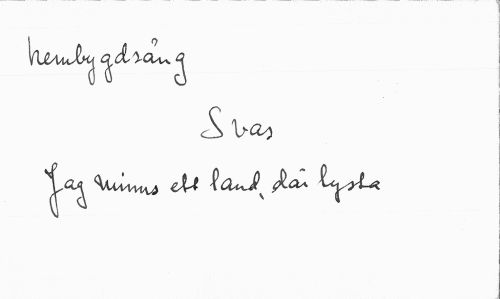 hembygdsång
Svas
Jag minns ett land, där lysta